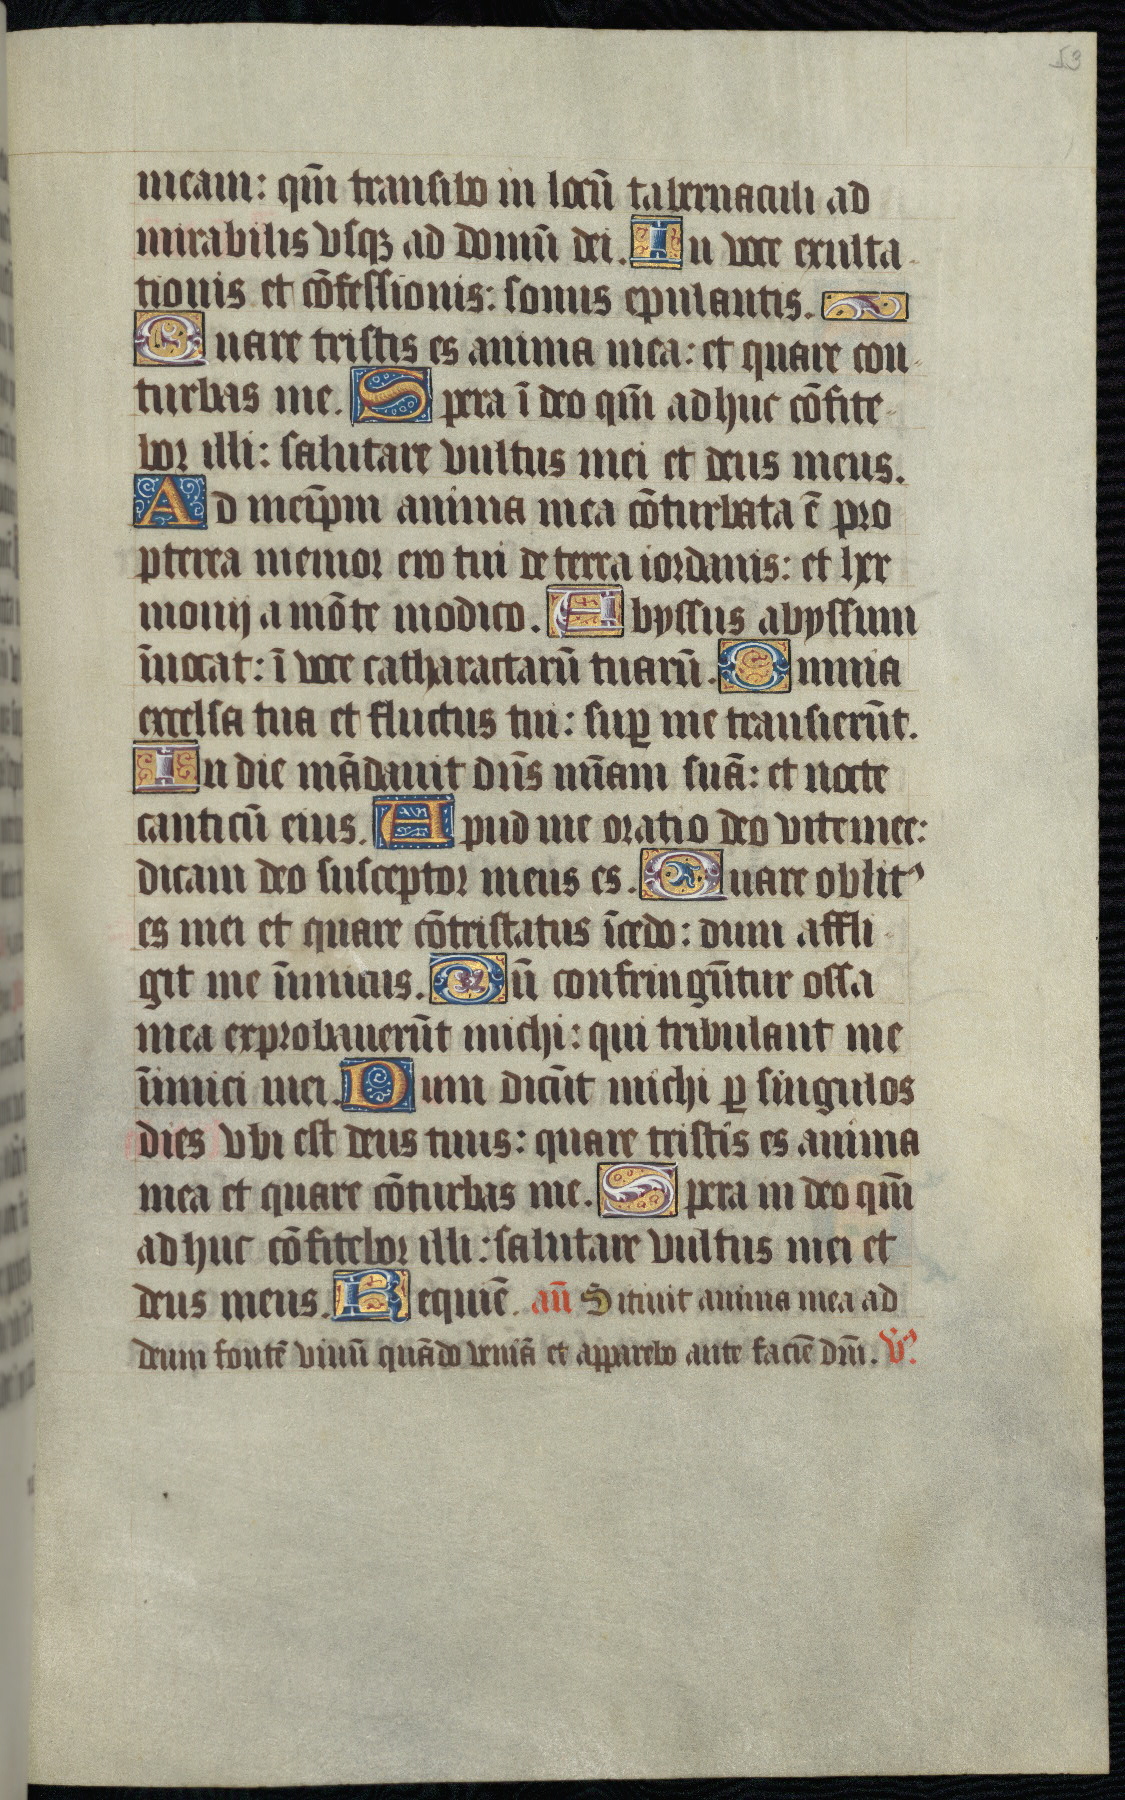 53
meam: qm̄ transibo in locū tabernaculi ad
mirabilis vsqꝫ ad domū dei. In voce exulta-
tionis et cōfessionis: sonus epulantis.
Quare tristis es anima mea: et quare con-
turbas me. Spera ī deo qm̄ adhuc cōfite-
bor illi: salutare vultus mei et deus meus.
Ad meip̄m anima mea cōturbata ē pro
pterea memor ero tui de terra iordanis: et her
monij a mōte modico. Abyssus abyssum
īuocat: ī voce catharactarū tuarū. Omnia
excelsa tua et fluctus tui: suꝑ me transierūt.
In die mādauit dn̄s mīam suā: et nocte
canticū eius. Apud me oratio deo vite mee:
dicam deo susceptor meus es. Quare oblitꝰ
es mei et quare cōtristatus īcedo: dum affli-
git me īimicus. Dū confringūtur ossa
mea exprobauerūt michi: qui tribulant me
īimici mei. Dum dicūt michi ꝑ singulos
dies vbi est deus tuus: quare tristis es anima
mea et quare cōturbas me. Spera in deo qm̄
adhuc cōfitebor illi: salutare vultus mei et
deus meus. Requiē. an̄ Sitiuit anima mea ad
deum fontē viuū quādo veniā et apparebo ante faciē dn̄i. V̉.